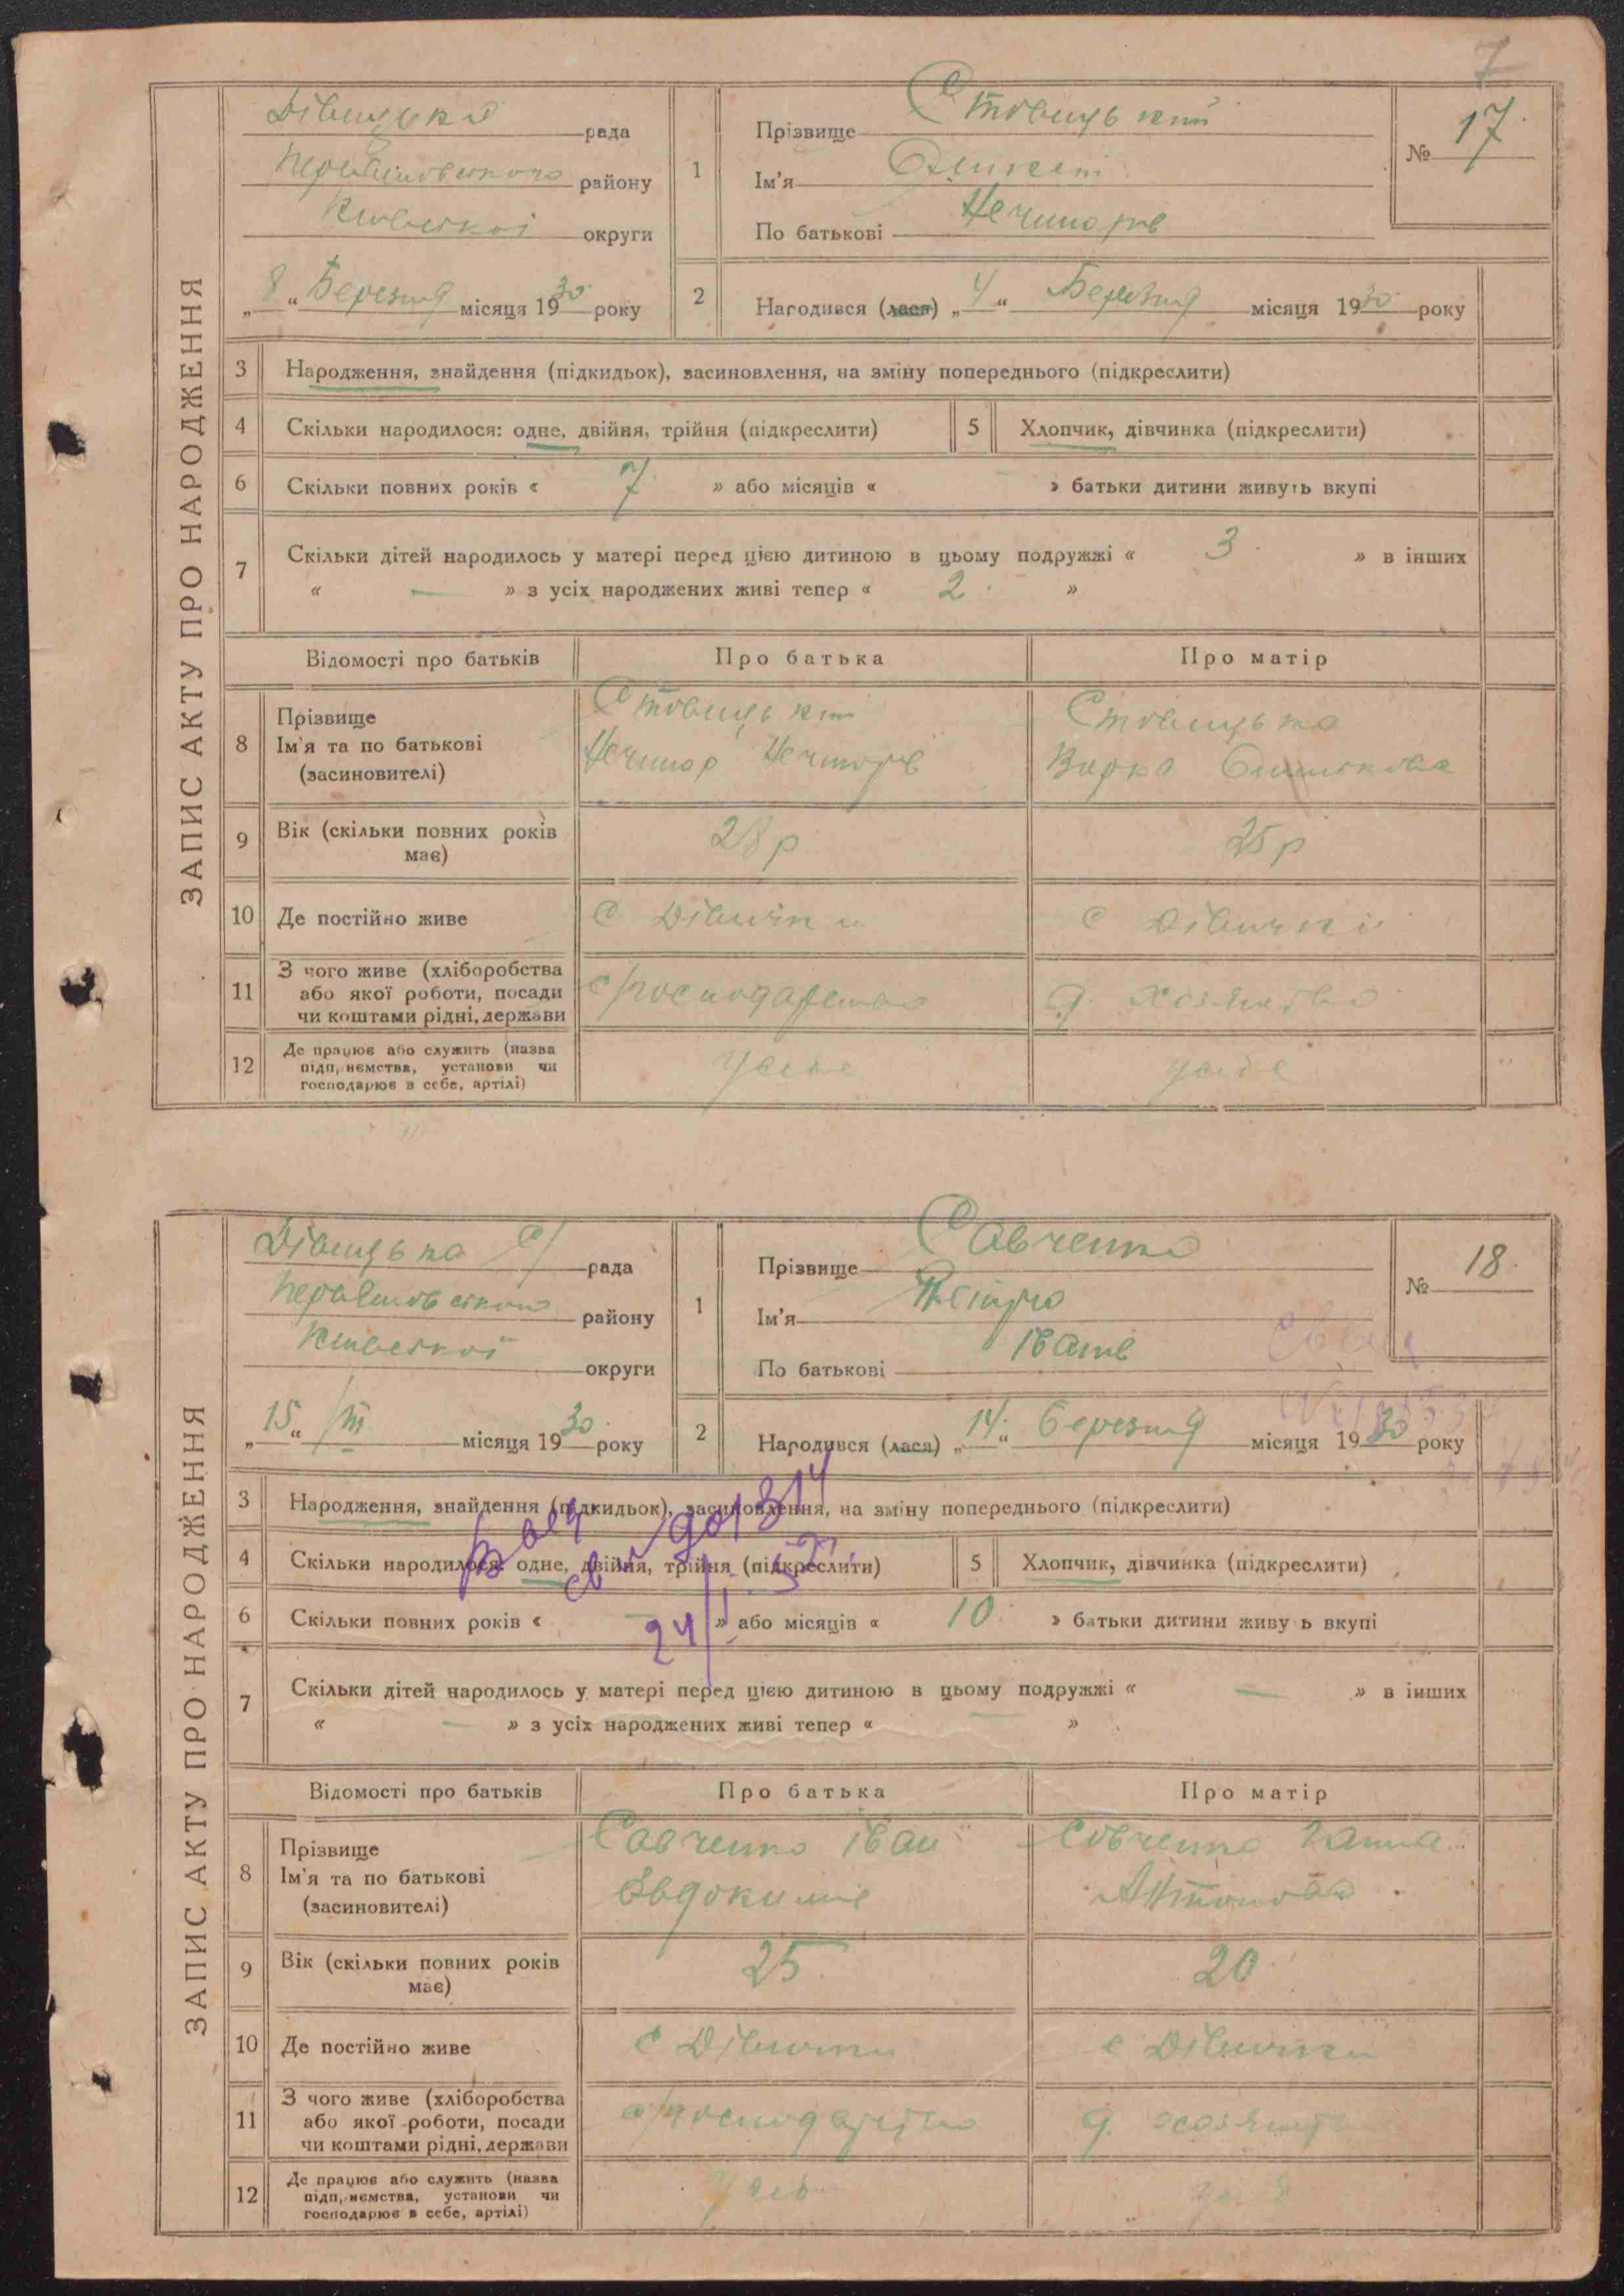 7
ЗАПИС АКТУ ПРО НАРОДЖЕННЯ
Дівицька рада
району
Київської округи
„8“ Березня місяця 1930 року
1
Прізвище
Ім'я
По батькові Нечипорів
№ 17
2
Народився (лася) „4“ Березня місяця 1930 року
3 Народження, знайдення (підкидьок), засиновлення, на зміну попереднього (підкреслити)
4 Скільки народилося: одне, двійня, трійня (підкреслити) 5 Хлопчик, дівчинка (підкреслити)
6 Скільки повних років « 7 » або місяців « » батьки дитини живуть вкупі
7 Скільки дітей народилось у матері перед цією дитиною в цьому подружжі « 3 » в інших
« — » з усіх народжених живі тепер « 2 »
Відомості про батьків Про батька Про матір
8 Прізвище
Ім'я та по батькові
(засиновителі)
Нечипор Нечипорів
Варка
9 Вік (скільки повних років має) 28 р 25 р
10 Де постійно живе с Дівички с Дівички
11 З чого живе (хліборобства або якої роботи, посади чи коштами рідні, держави с/господарство д. хозяйство
12 Де працює або служить (назва підприємства, установи чи господарює в себе, артілі) у себе у себе
ЗАПИС АКТУ ПРО НАРОДЖЕННЯ
Дівицька с/рада
району
Київської округи
„15“ /III місяця 1930 року
1
Прізвище Савченко
Ім'я Петро
По батькові Іванів
№ 18
2
Народився (лася) „14“ березня місяця 1930 року
3 Народження, знайдення (підкидьок), засиновлення, на зміну попереднього (підкреслити)
4 Скільки народилося: одне, двійня, трійня (підкреслити) 5 Хлопчик, дівчинка (підкреслити)
6 Скільки повних років « — » або місяців « 10 » батьки дитини живу ь вкупі
7 Скільки дітей народилось у матері перед цією дитиною в цьому подружжі « — » в інших
« — » з усіх народжених живі тепер « — »
Відомості про батьків Про батька Про матір
8 Прізвище
Ім'я та по батькові
(засиновителі)
Савченко Іван
Євдокимів
Савченко Ганна
Антонова
9 Вік (скільки повних років має) 25 20
10 Де постійно живе с Дівички с Дівички
11 З чого живе (хліборобства або якої роботи, посади чи коштами рідні, держави с/господарство д. хозяйство
12 Де працює або служить (назва підприємства, установи чи господарює в себе, артілі) у себе